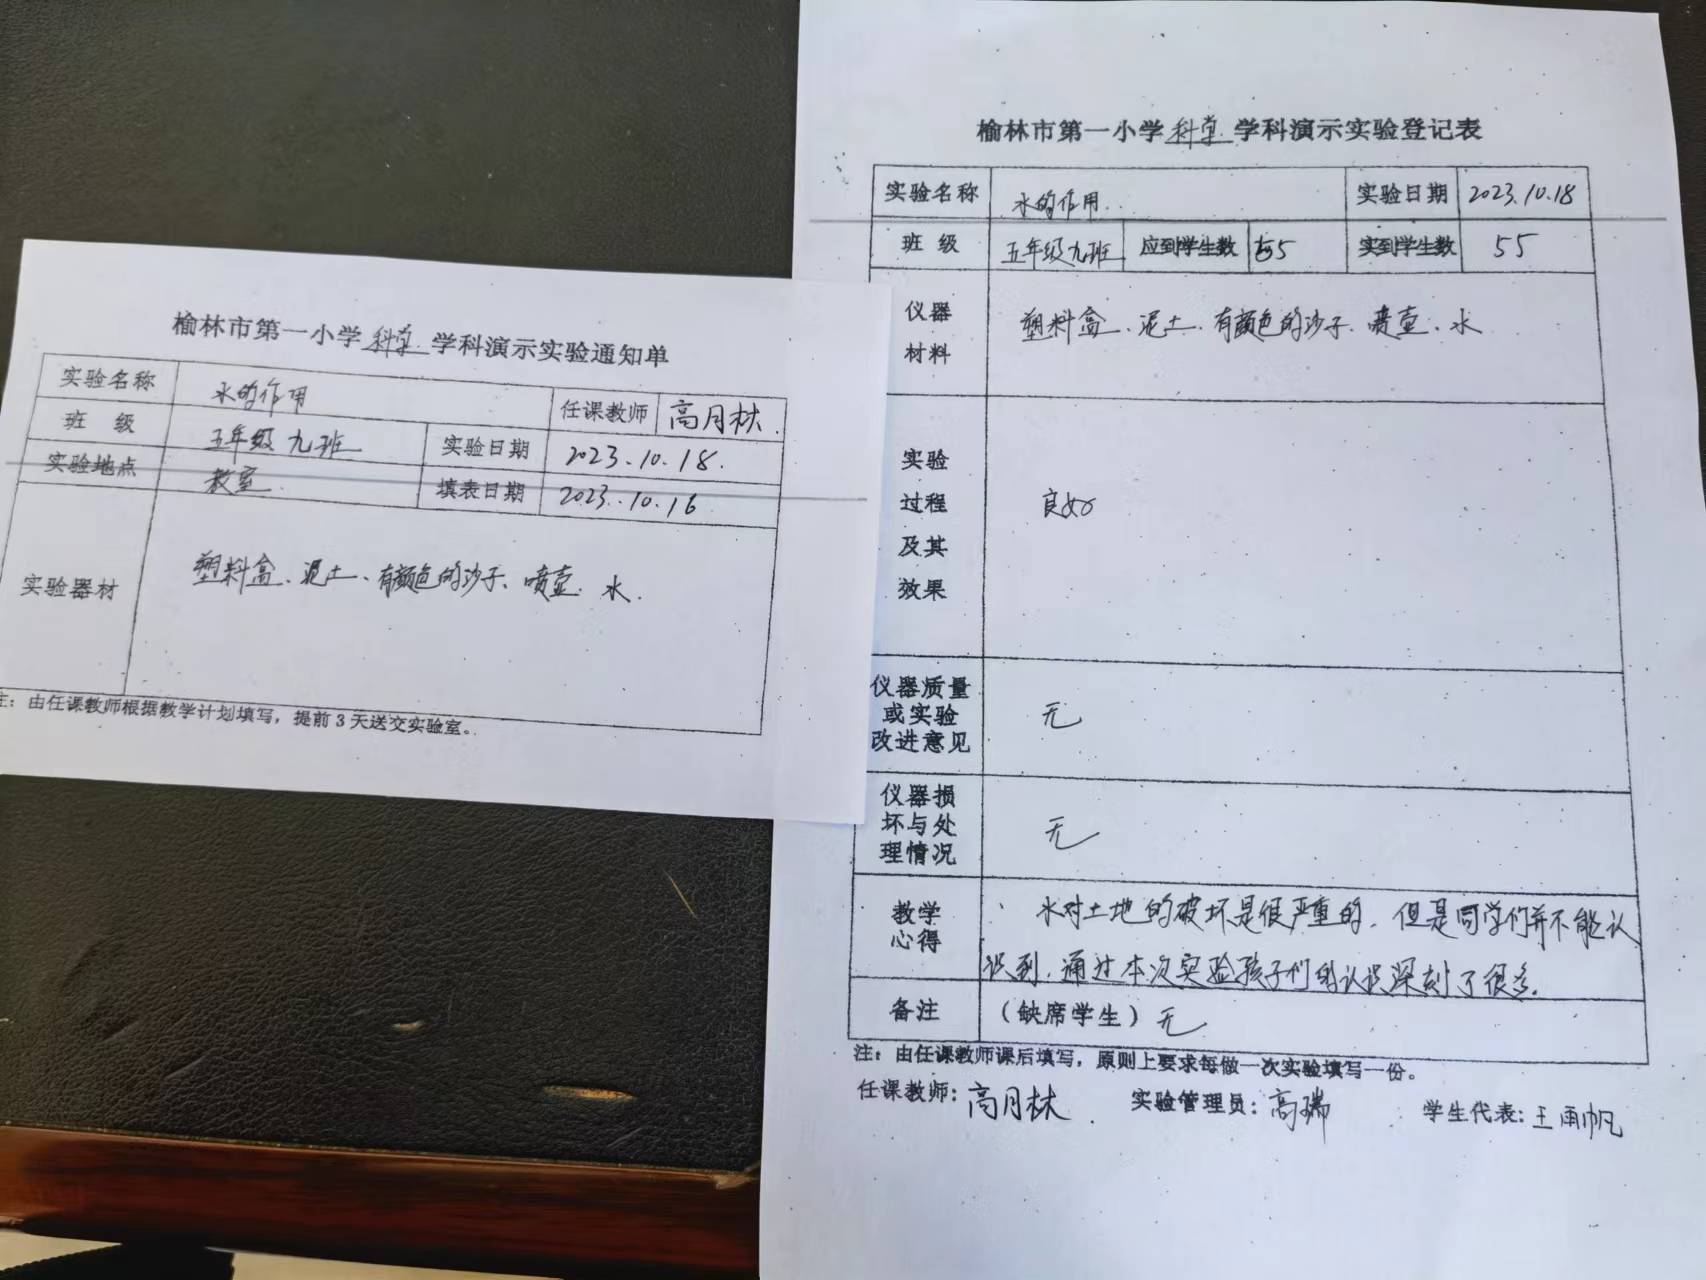 榆林市第一小学科学学科演示实验通知单
实验名称 水的作用 任课教师 高月林.
班 级 五年级九班 实验日期 2023.10.18.
实验地点 教室. 填表日期 2023.10.16
实验器材 塑料盒、泥土、有颜色的沙子、喷壶.水.
注：由任课教师根据教学计划填写，提前3天送交实验室。
榆林市第一小学科学学科演示实验登记表
实验名称 水的作用. 实验日期 2023.10.18
班 级 五年级九班 应到学生数 55 实到学生数 55
仪器
材料
塑料盒、泥土、有颜色的沙子、喷壶、水
实验
过程
及其
效果
良好
仪器质量
或实验
改进意见
无
仪器损
坏与处
理情况
无
教学
心得
水对土地的破坏是很严重的，但是同学们并不能认
识到.通过本次实验孩子们的认识深刻了很多.
备注 （缺席学生）无
注：由任课教师课后填写，原则上要求每做一次实验填写一份。
任课教师：高月林 实验管理员：高瑞 学生代表：王雨帆